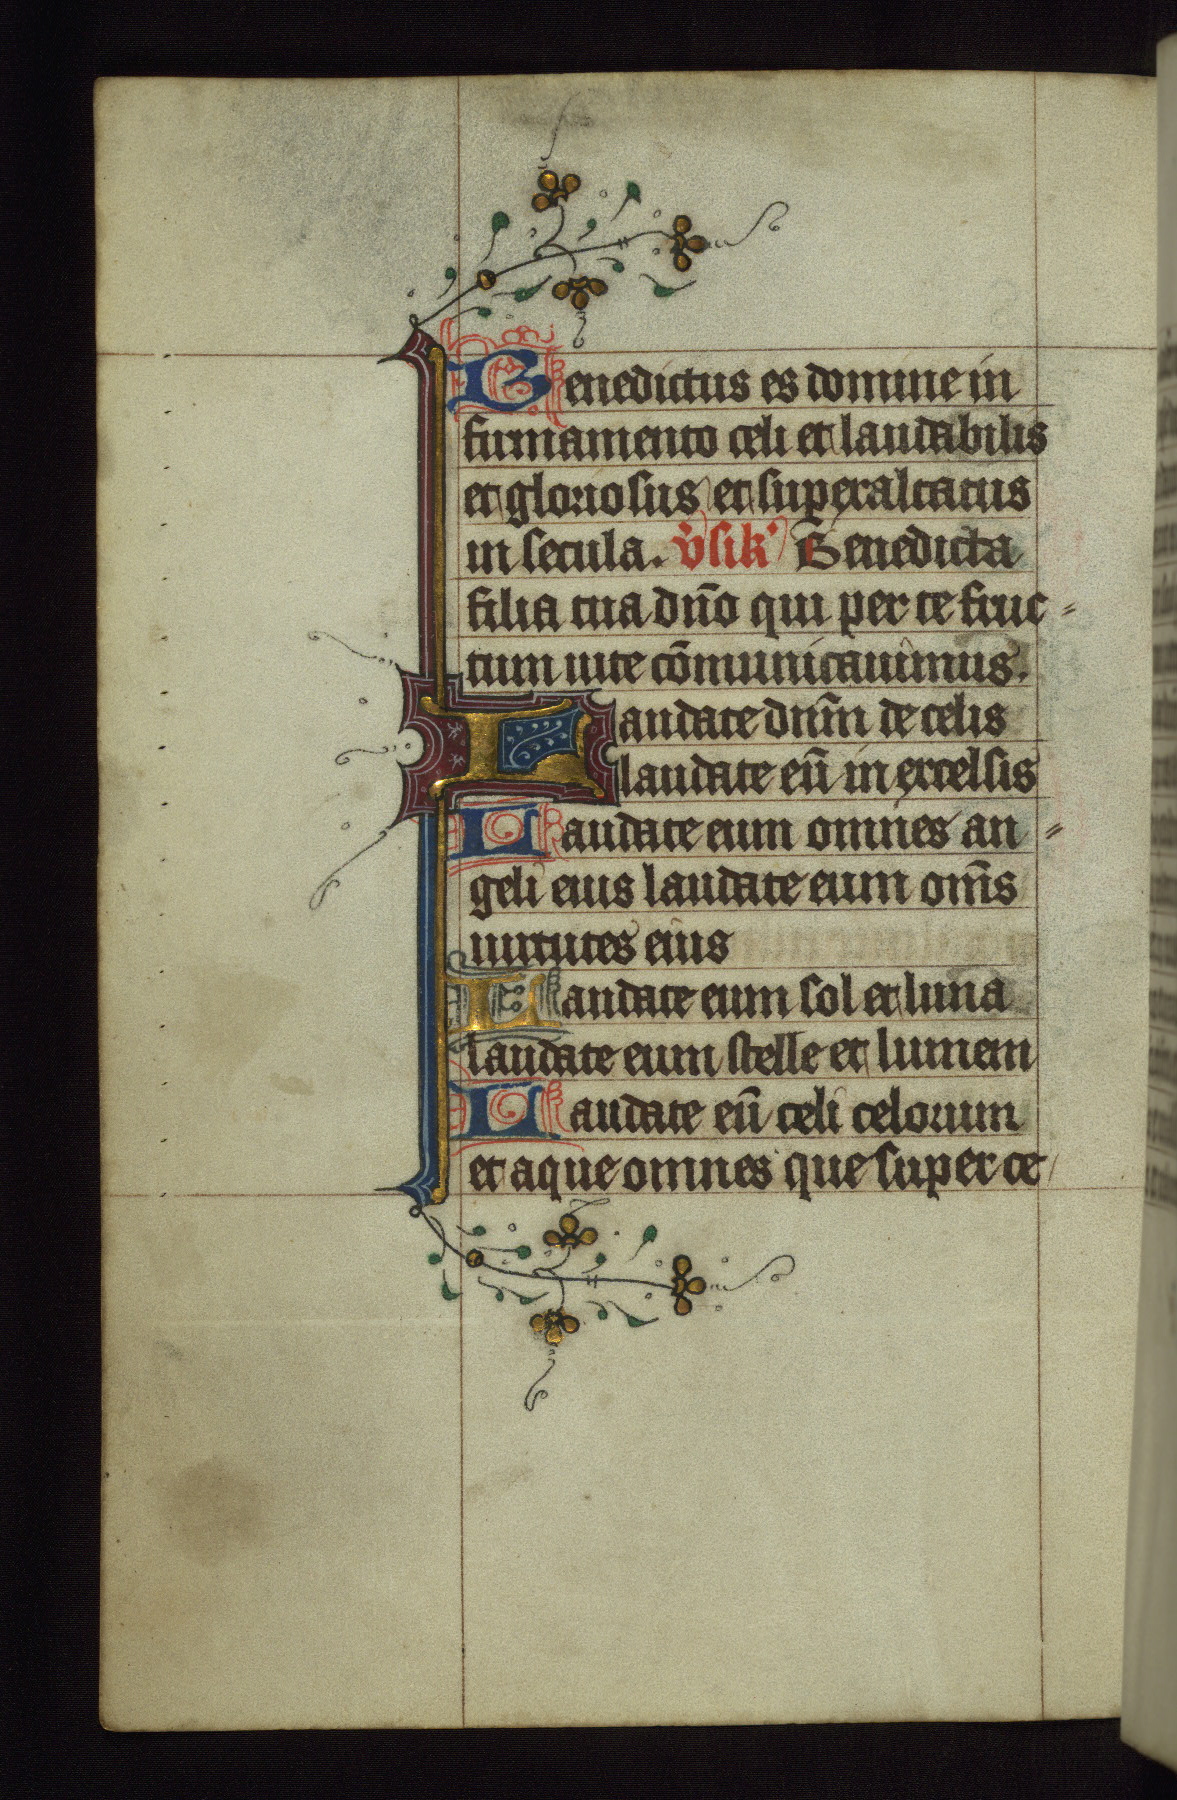 Benedictus es domine in
firmamento celi et laudabilis
et gloriosus et superaltatus
in secula. v̄sik' Benedicta
filia tua dño qui per te fruc
tum uite cōmunicauimus.
Laudate dnm̄ de celis
laudate eū in excelsis
Laudate eum omnes an
geli eius laudate eum om̄s
uirtutes eius
Laudate eum sol et luna
laudate eum stelle et lumen
Laudate eū celi celorum
et aque omnes que super ce